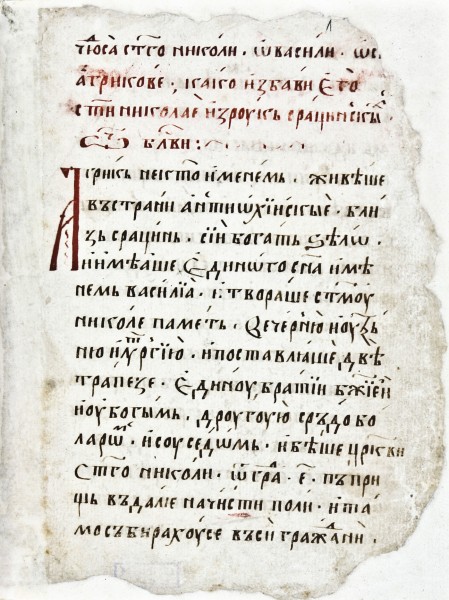 чюса ст҃го николи · ѡ василии · ѡс
агрикове · како избави его
ст҃ии николае из роукь срациньскыⷯ ·
бл҃ви :
Агрикь нѣкто именемь · живѣше
въ страни антиѡхїискые · бли
зь срацинь · сїи богать ѕѣлѡ ·
и имѣаше единого сн҃а имѣ
немь василїа · и твораше ст҃моу
николе паметь · вечерню и оутрь
ню и лиⷮргїю · и поставлꙗше двѣ
трапезе · единоу братїи
и оубогымь · дроугоую срьдобо
лꙗрѡⷨ · и соуседѡмь · и бѣше црⷦви
ст҃го николи · ѿ граⷣ · е҃ · пьпри
щь въ далїе на чисти поли · и та
мо събирахоу се въси граждани ·